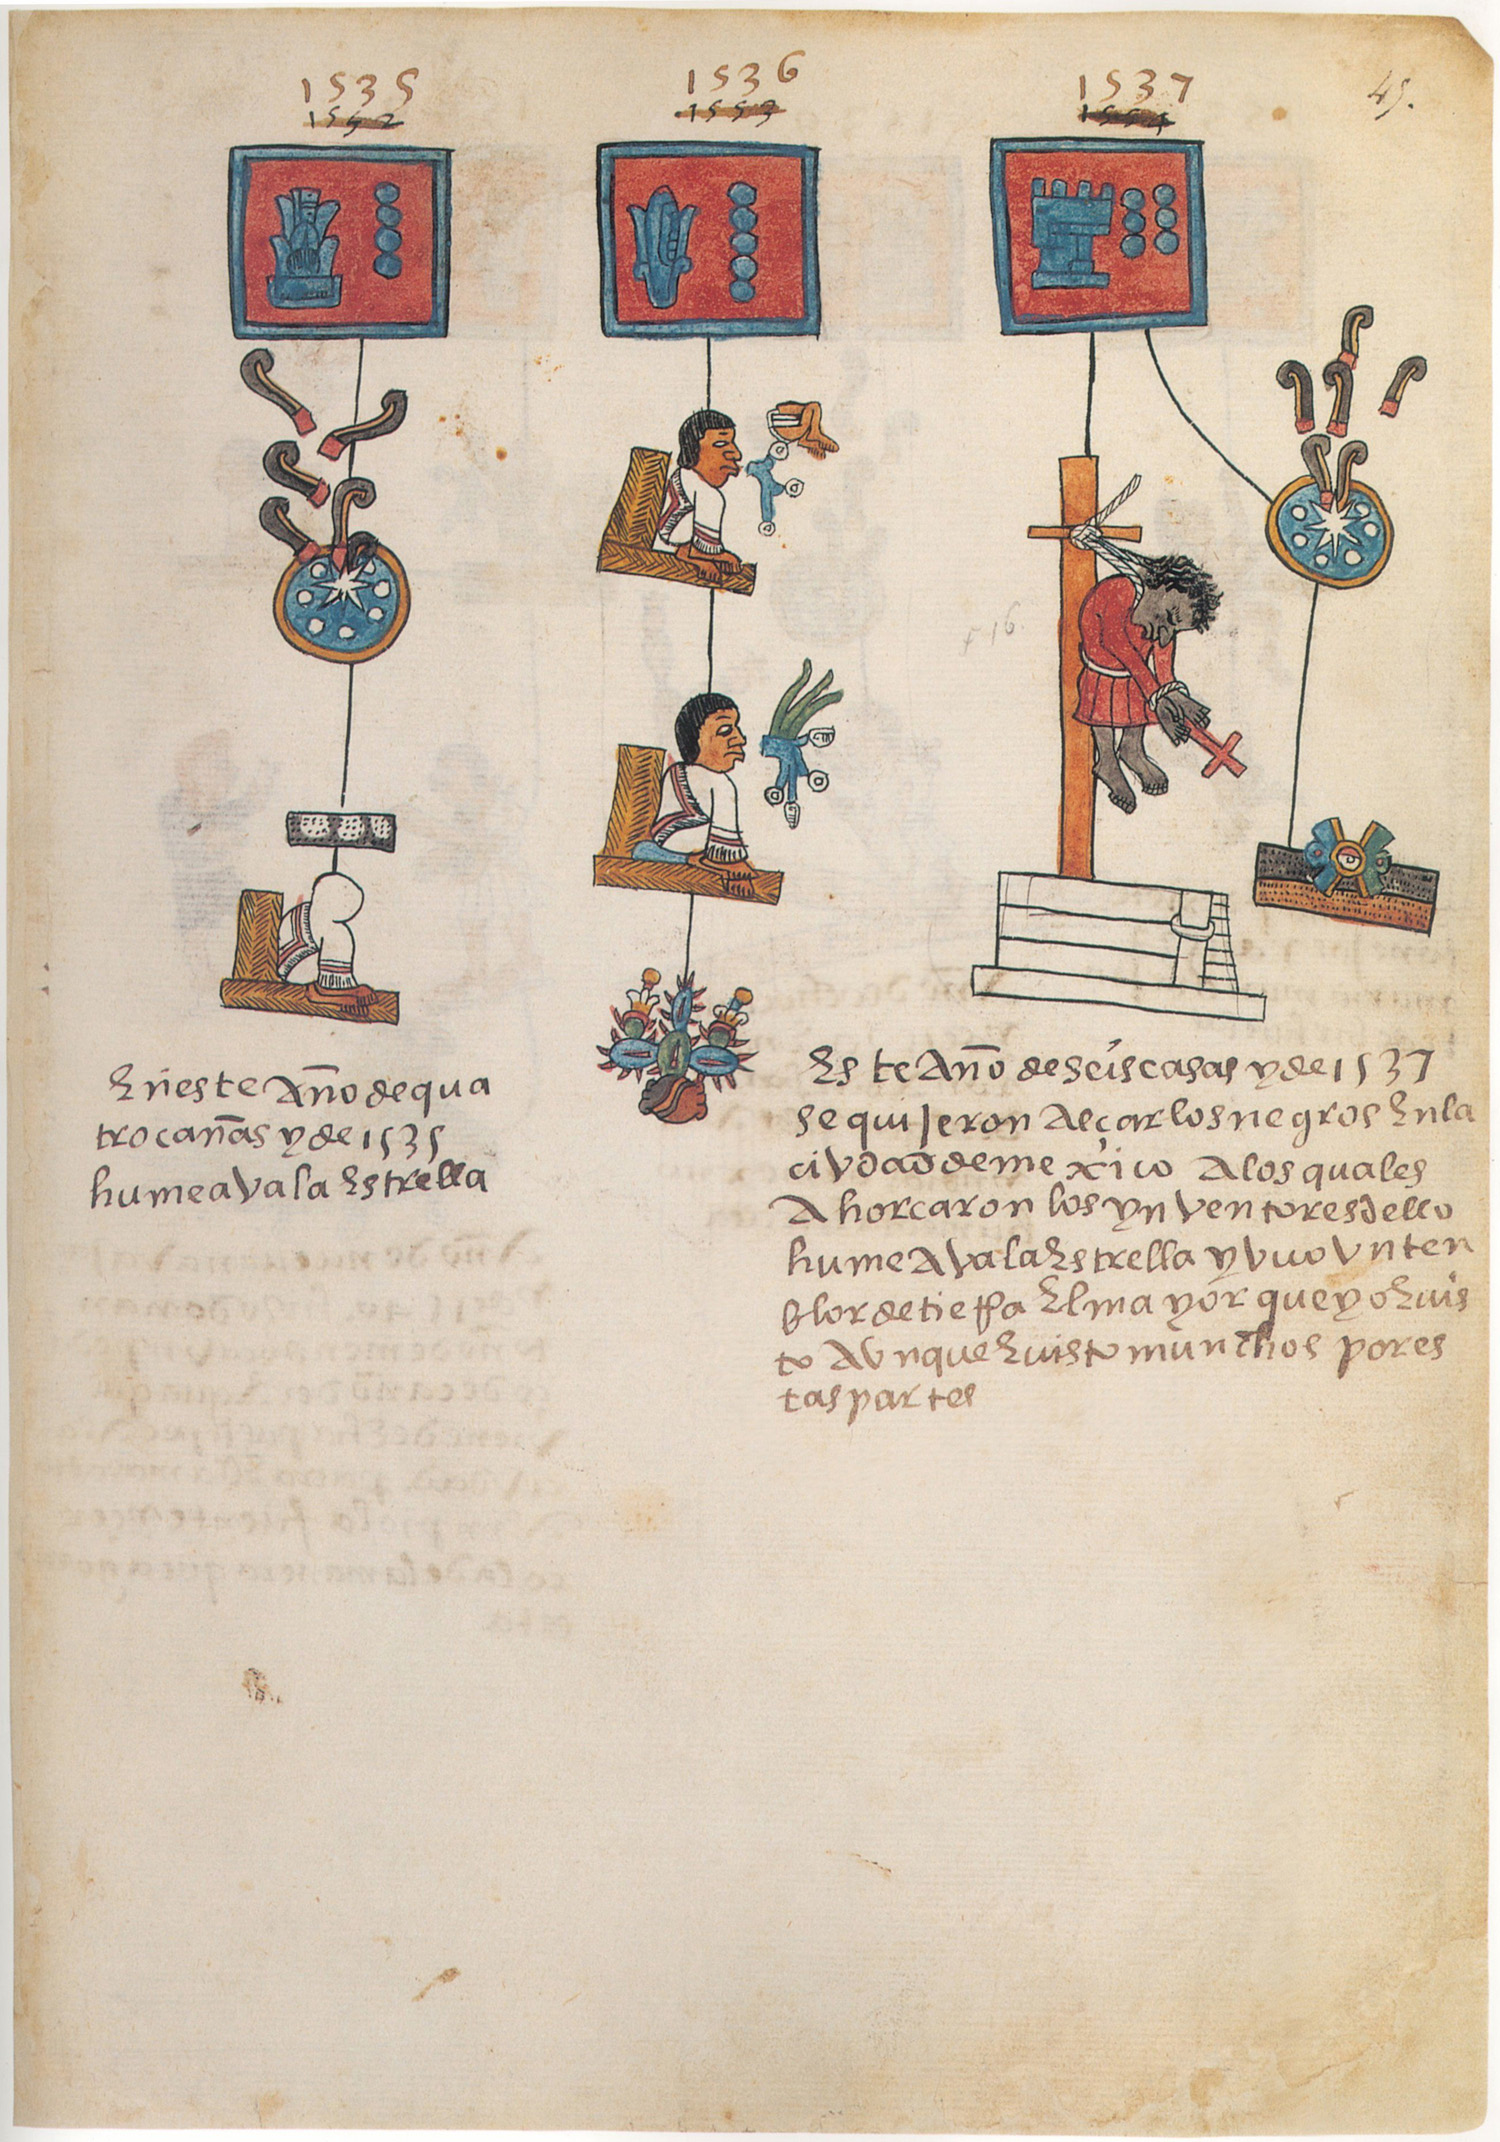 1535
1552
1536
1553
1537
1554
45.
f 16.
En este Año de qua
tro cañas y de 1535
humeava la Estrella
Es te Año de seis casas y de 1537
se quisieron Alçar los negros En la
ciudad de mexico A los quales
Ahorcaron los ynventores dello
humeava la Estrella y vuo vn ten
blor de tierra El mayor que yo E uis
to Avnque E uisto munchos por es
tas partes